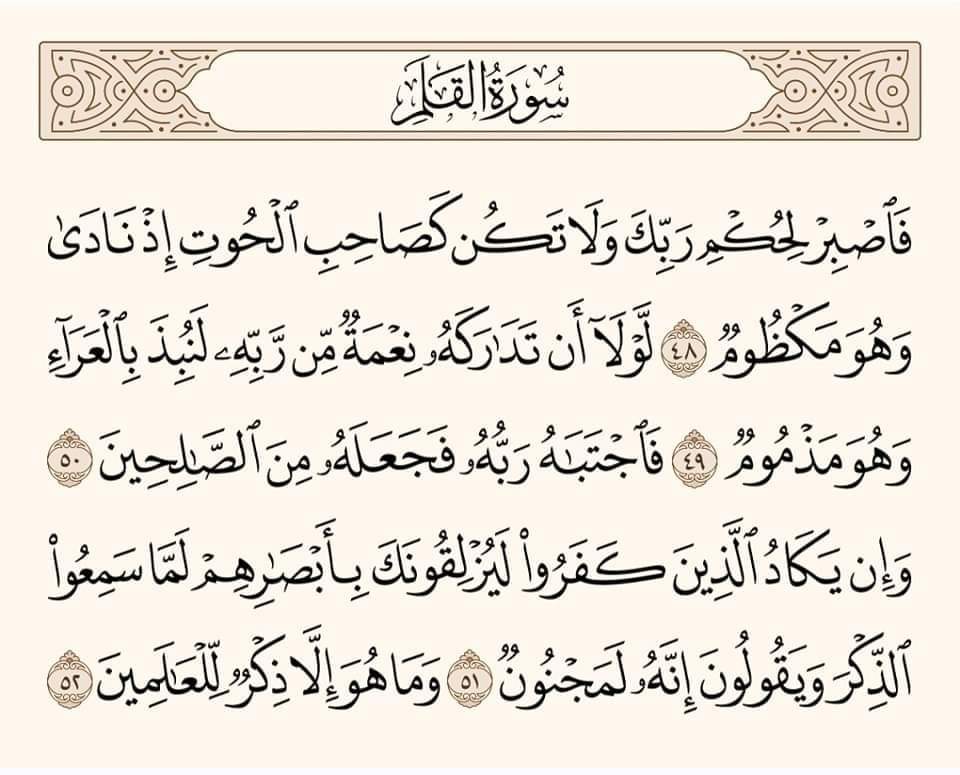 سُورَةُ الْقَلَمِ
فَٱصۡبِرۡ لِحُكۡمِ رَبِّكَ وَلَا تَكُن كَصَاحِبِ ٱلۡحُوتِ إِذۡ نَادَىٰ
وَهُوَ مَكۡظُومٞ ٤٨ لَّوۡلَآ أَن تَدَٰرَكَهُۥ نِعۡمَةٞ مِّن رَّبِّهِۦ لَنُبِذَ بِٱلۡعَرَآءِ
وَهُوَ مَذۡمُومٞ ٤٩ فَٱجۡتَبَٰهُ رَبُّهُۥ فَجَعَلَهُۥ مِنَ ٱلصَّٰلِحِينَ ٥٠
وَإِن يَكَادُ ٱلَّذِينَ كَفَرُواْ لَيُزۡلِقُونَكَ بِأَبۡصَٰرِهِمۡ لَمَّا سَمِعُواْ
ٱلذِّكۡرَ وَيَقُولُونَ إِنَّهُۥ لَمَجۡنُونٞ ٥١ وَمَا هُوَ إِلَّا ذِكۡرٞ لِّلۡعَٰلَمِينَ ٥٢